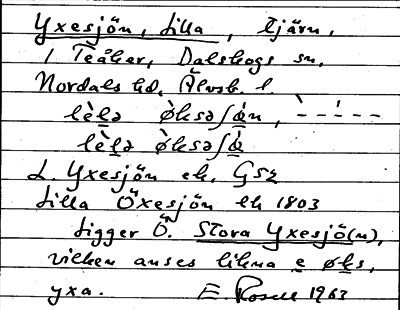 Yxesjön, Lilla, tjärn,
i Teåker, Dalskogs sn,
Nordals hd, Älvsb. l.
lè̀lə ø̀ksəʃǿn, ̀- - ́- - -
lè̀lə ø̀ksəʃǿ
L. Yxesjön ek, GSz
Lilla Öxesjön lk 1803
Ligger Ö. Stora Yxesjö(n),
vilken anses likna e øks,
yxa. E. Rosell 1963